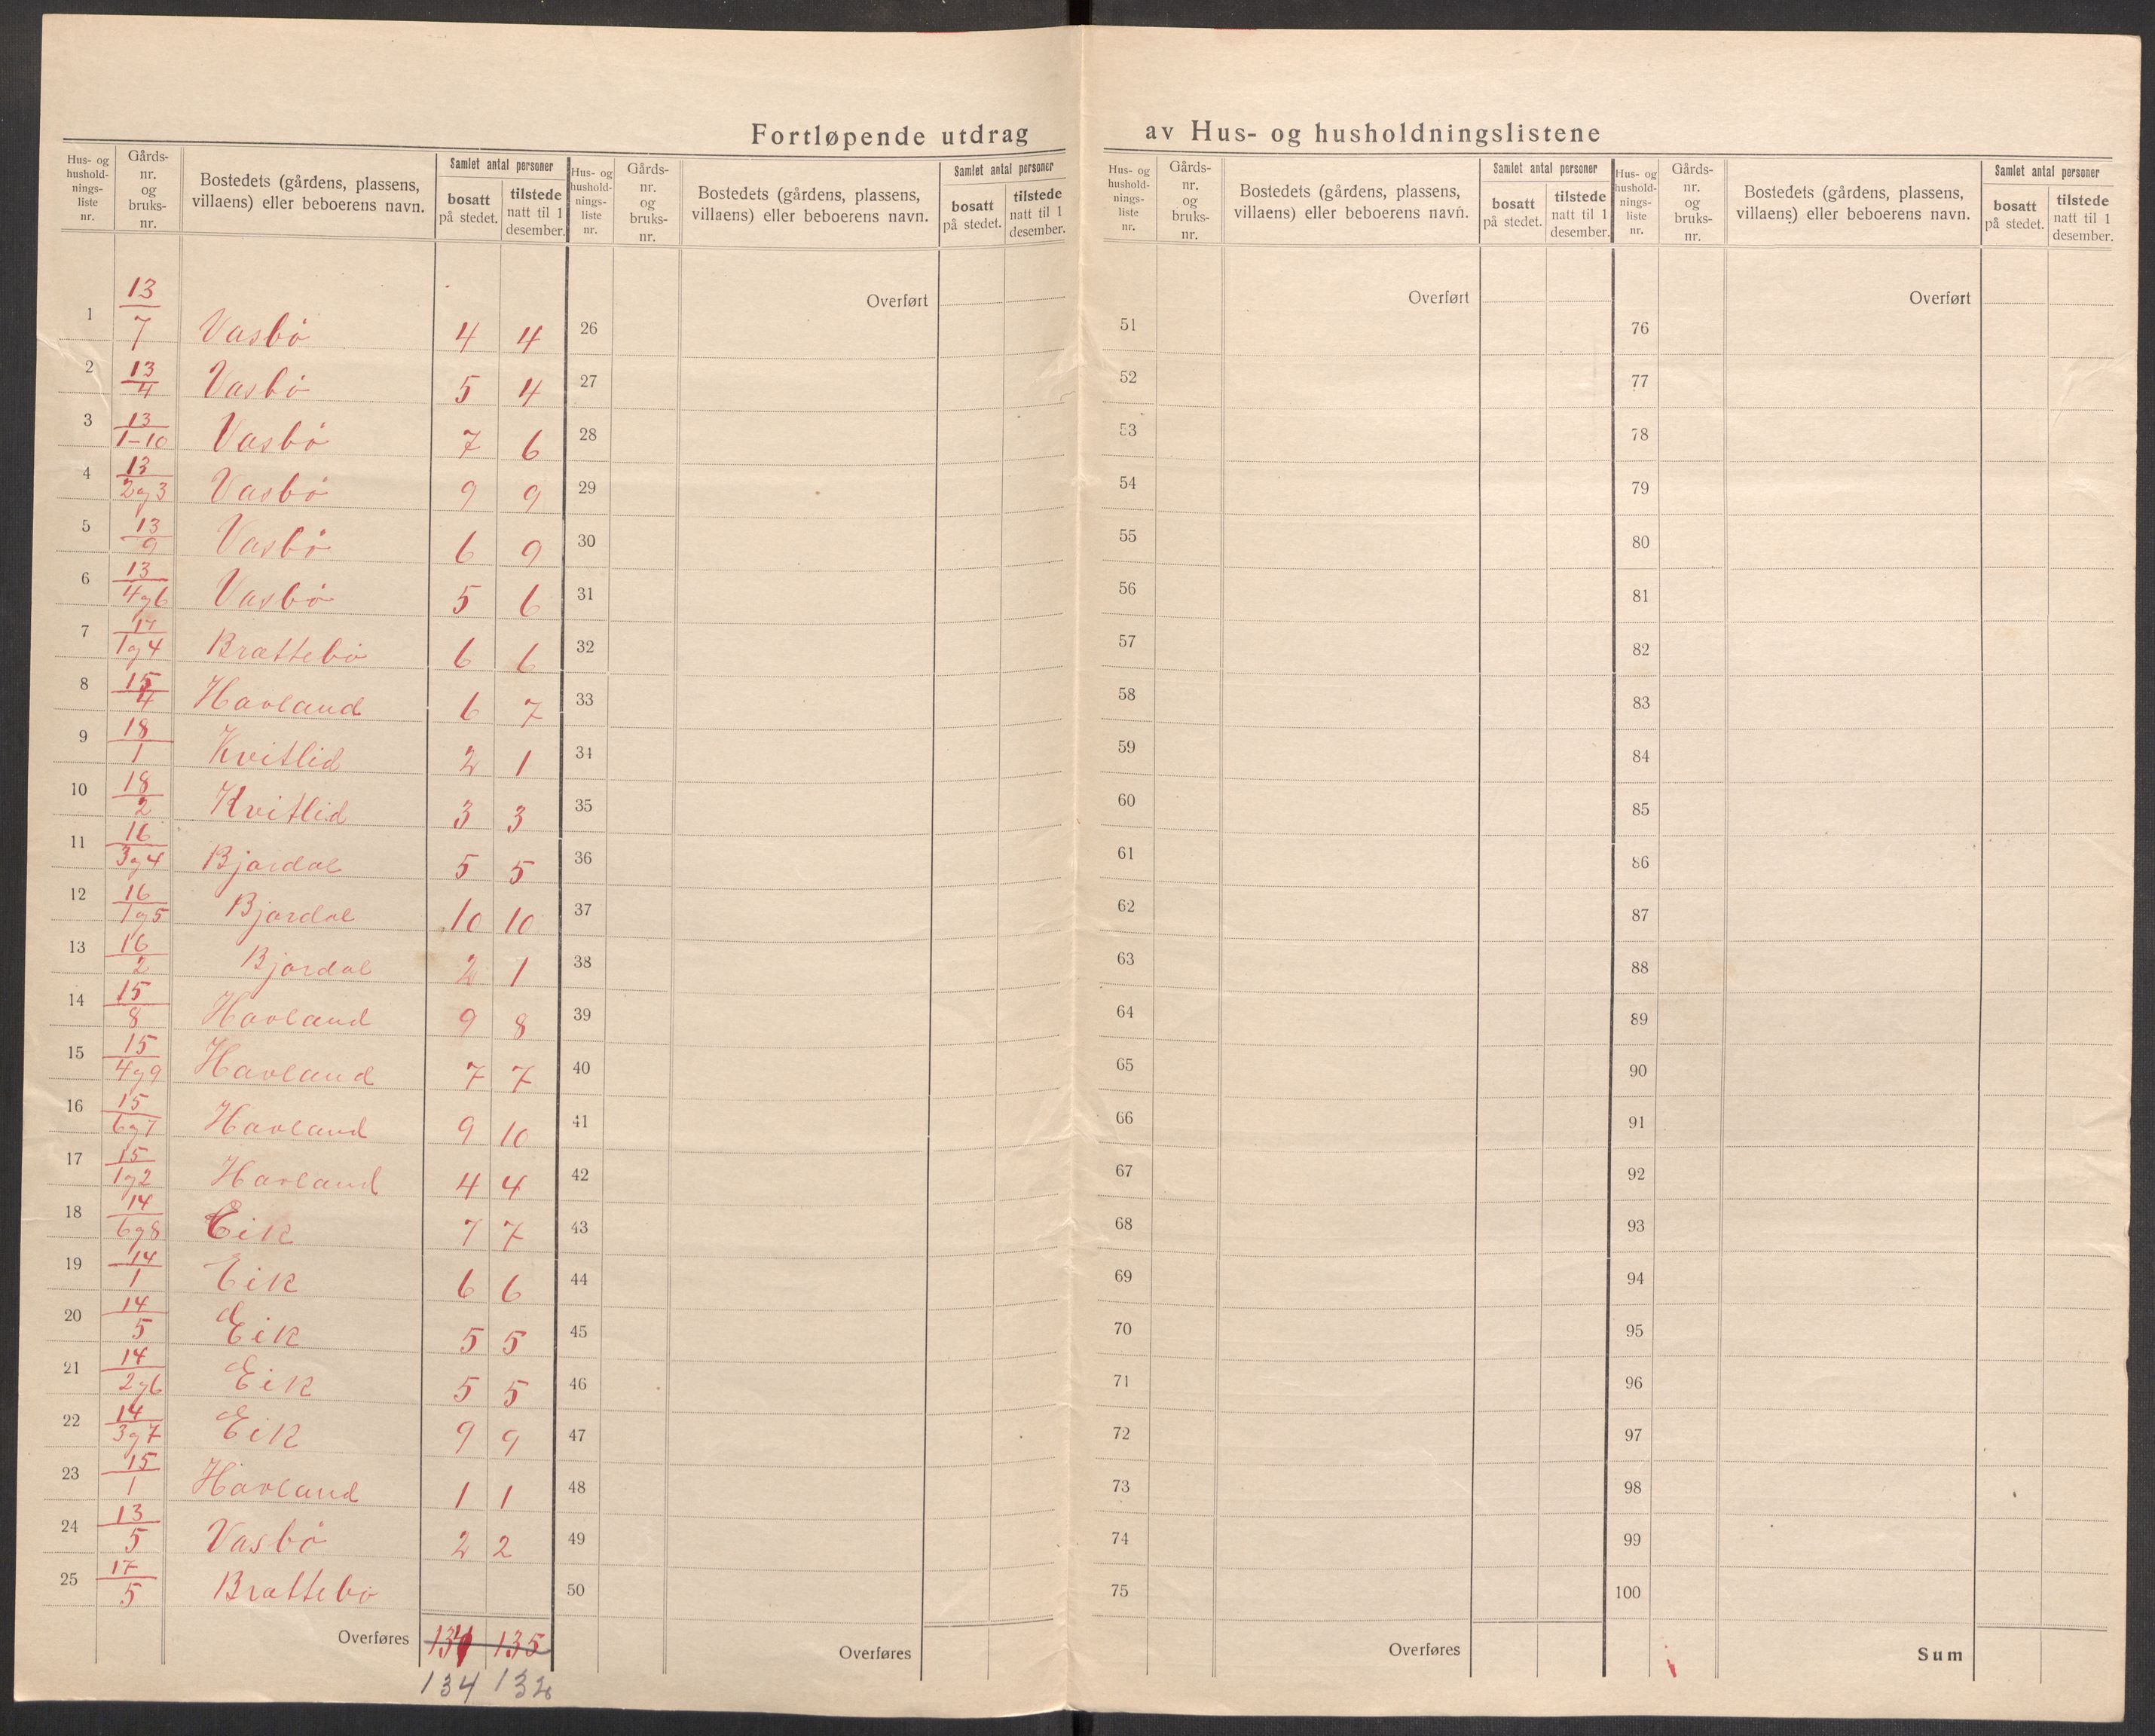 Fortløpende utdrag av Hus- og husholdningslistene
Hus- og hushold- nings- liste nr. | Gårds- nr. og bruks- nr. | Bostedets (gårdens, plassens, villaens) eller beboerens navn. | Samlet antal personer | bosatt på stedet. | tilstede natt til 1 desember.
1 | 13/7 | Vasbø | 4 | 4
2 | 13/4 | Vasbø | 5 | 4
3 | 13/1-10 | Vasbø | 7 | 6
4 | 13/2og3 | Vasbø | 9 | 9
5 | 13/9 | Vasbø | 6 | 9
6 | 13/4og6 | Vasbø | 5 | 6
7 | 17/1og4 | Brattebø | 6 | 6
8 | 15/4 | Havland | 6 | 7
9 | 18/1 | Kvitlid | 2 | 1
10 | 18/2 | Kvitlid | 3 | 3
11 | 16/3og4 | Bjordal | 5 | 5
12 | 16/1og5 | Bjordal | 10 | 10
13 | 16/2 | Bjordal | 2 | 1
14 | 15/8 | Havland | 9 | 8
15 | 15/4og9 | Havland | 7 | 7
16 | 15/6og7 | Havland | 9 | 10
17 | 15/1og2 | Havland | 4 | 4
18 | 14/6og8 | Eik | 7 | 7
19 | 14/1 | Eik | 6 | 6
20 | 14/5 | Eik | 5 | 5
21 | 14/2og6 | Eik | 5 | 5
22 | 14/3og7 | Eik | 9 | 9
23 | 15/1 | Havland | 1 | 1
24 | 13/5 | Vasbø | 2 | 2
25 | 17/5 | Brattebø
Overføres | 134 | 135
134 | 136
Hus- og hushold- nings- liste nr. | Gårds- nr. og bruks- nr. | Bostedets (gårdens, plassens, villaens) eller beboerens navn. | Samlet antal personer | bosatt på stedet. | tilstede natt til 1 desember.
Overført
26
27
28
29
30
31
32
33
34
35
36
37
38
39
40
41
42
43
44
45
46
47
48
49
50
Overføres
Hus- og hushold- nings- liste nr. | Gårds- nr. og bruks- nr. | Bostedets (gårdens, plassens, villaens) eller beboerens navn. | Samlet antal personer | bosatt på stedet. | tilstede natt til 1 desember.
Overført
51
52
53
54
55
56
57
58
59
60
61
62
63
64
65
66
67
68
69
70
71
72
73
74
75
Overføres
Hus- og hushold- nings- liste nr. | Gårds- nr. og bruks- nr. | Bostedets (gårdens, plassens, villaens) eller beboerens navn. | Samlet antal personer | bosatt på stedet. | tilstede natt til 1 desember.
Overført
76
77
78
79
80
81
82
83
84
85
86
87
88
89
90
91
92
93
94
95
96
97
98
99
100
Sum